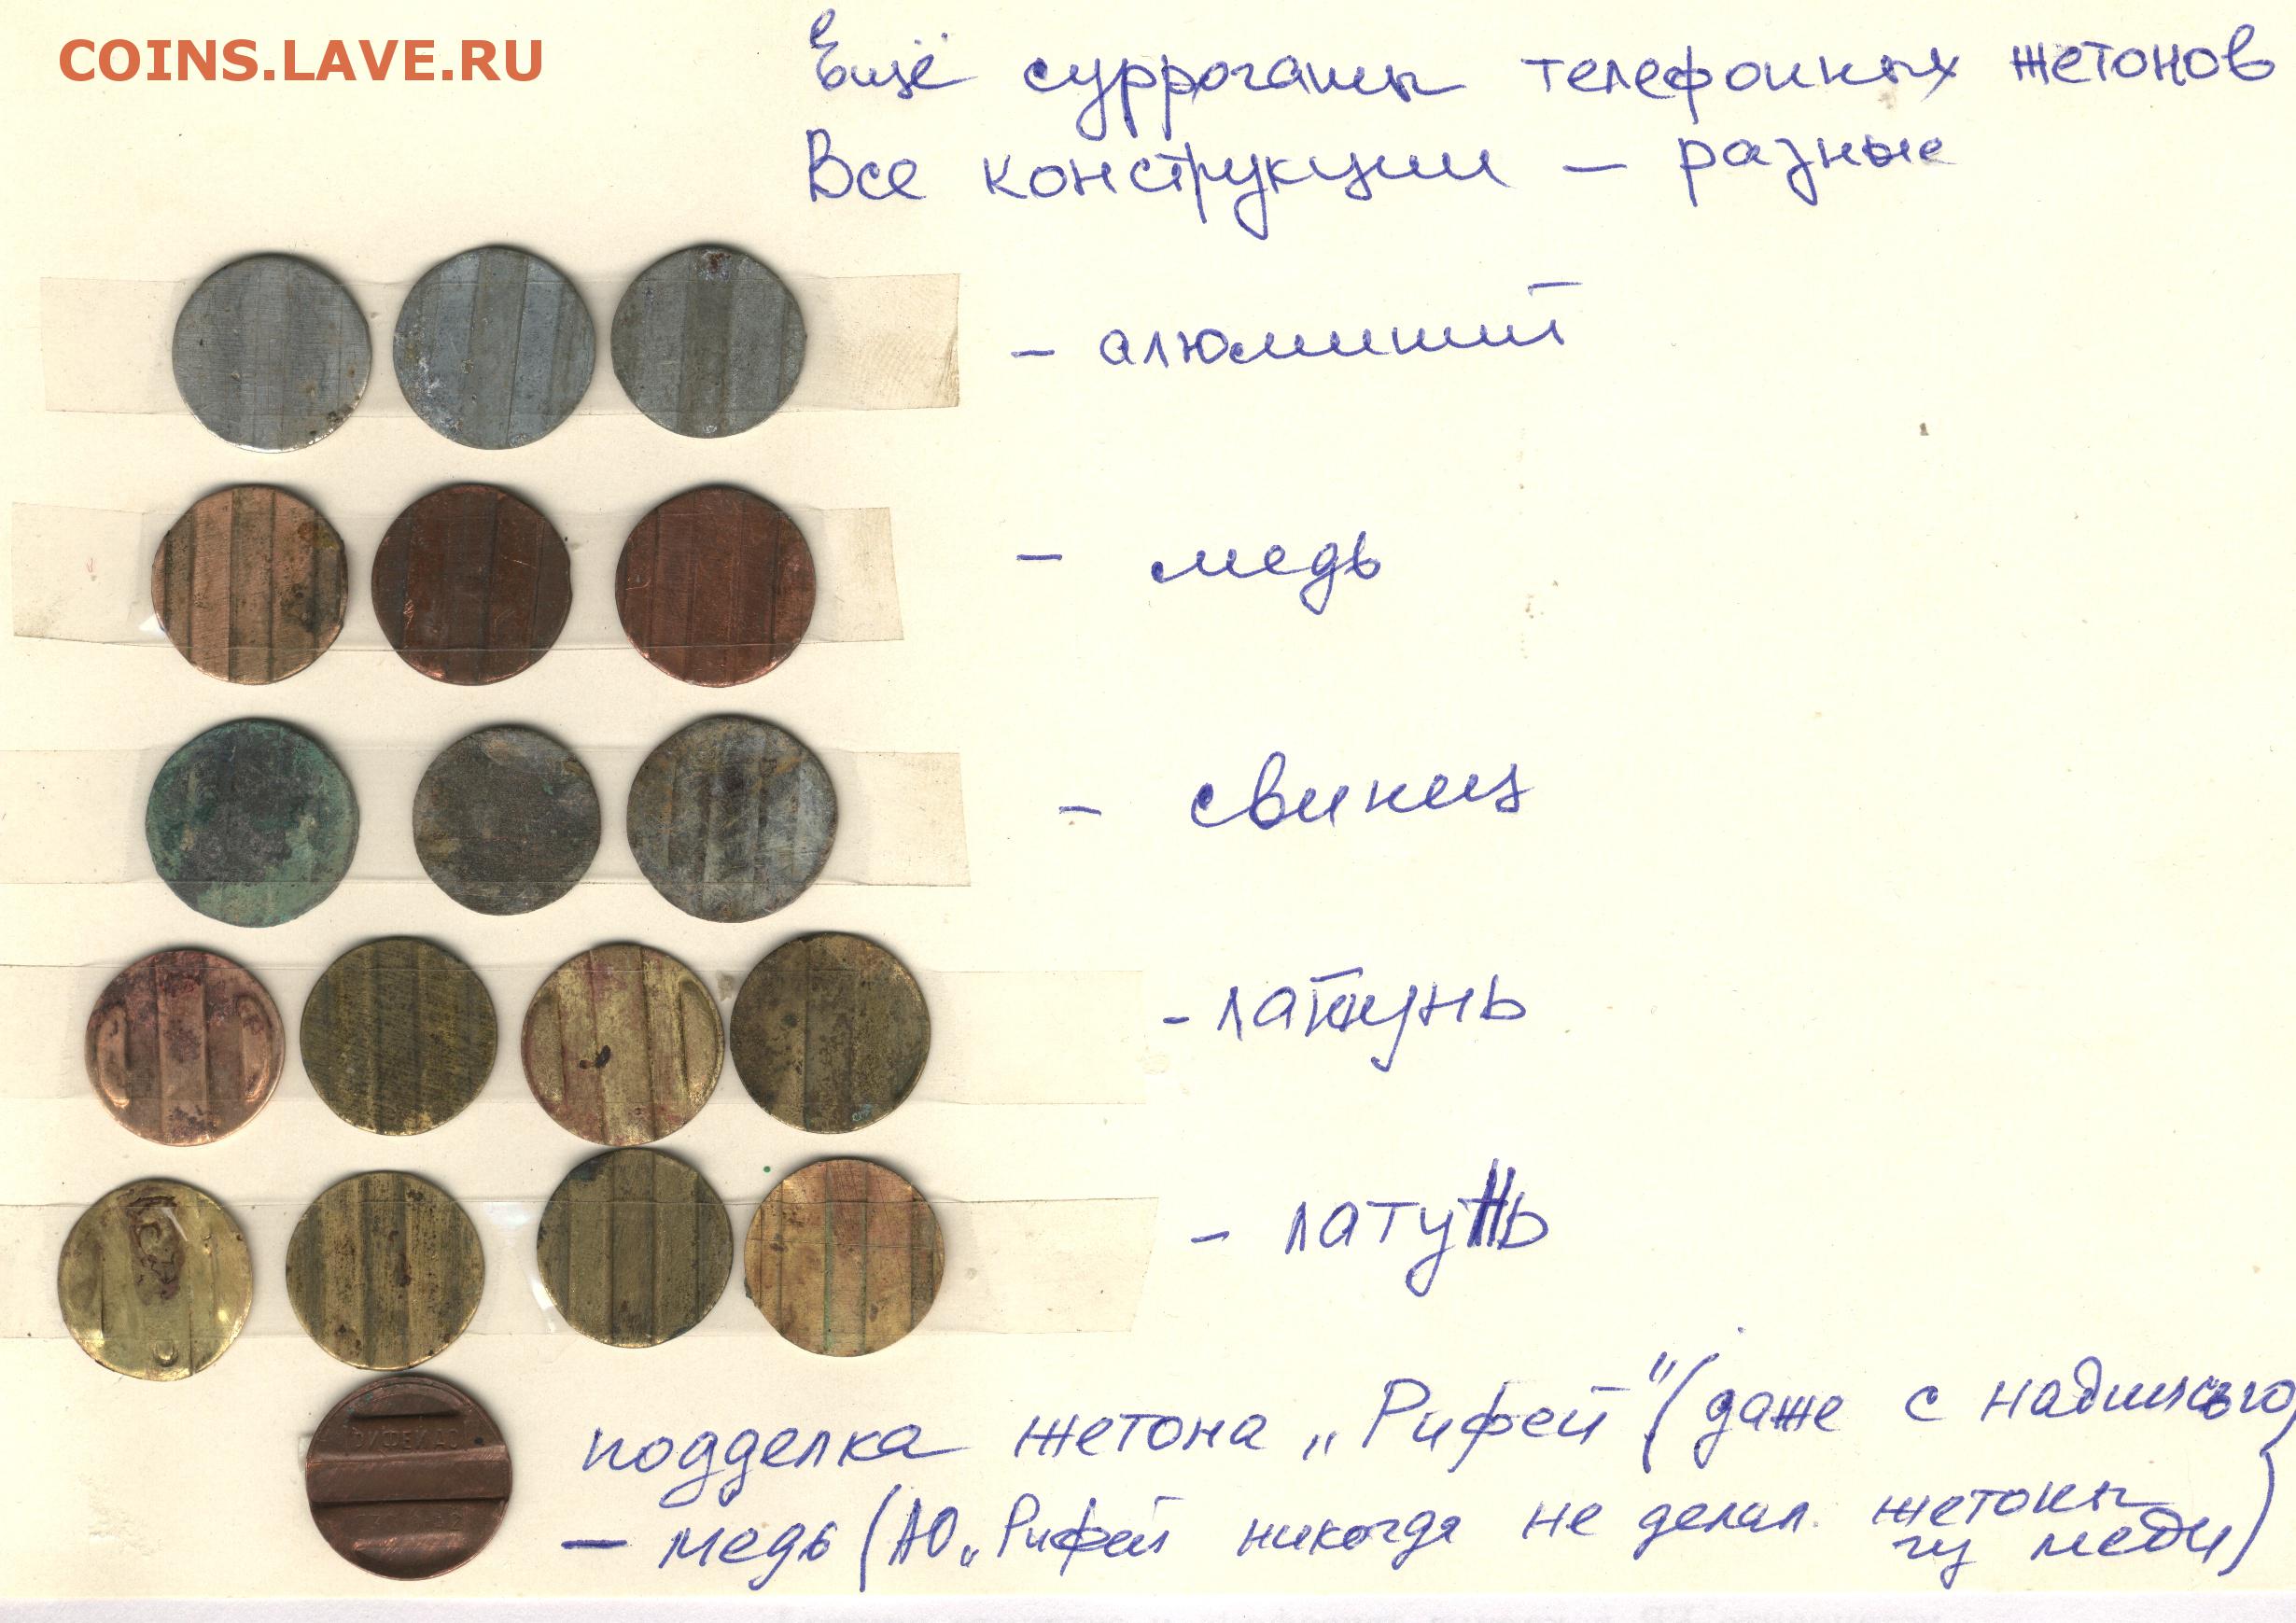 COINS.LAVE.RU
Ещё суррогаты телефонных жетонов
Все конструкции — разные
- алюминий
- медь
- свинец
- латунь
- латунь
подделка жетона „Рифей" (даже с надписью)
— медь (АО „Рифей никогда не делал жетоны
из меди)